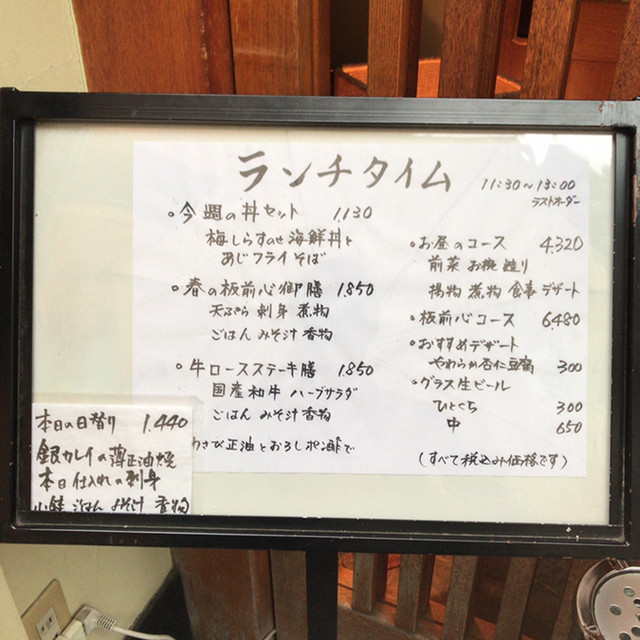 ランチタイム 11:30~13:00
ラストオーダー
・今週の丼セット 1,130
梅しらすのせ海鮮丼と
あじフライそば
・春の板前心御膳 1,850
天ぷら 刺身 煮物
ごはん みそ汁 香物
・牛ロースステーキ膳 1,850
国産和牛 ハーブサラダ
ごはん みそ汁 香物
わさび正油とおろしポン酢で
・お昼のコース 4,320
前菜 お椀 造り
揚物 煮物 食事 デザート
・板前心コース 6,480
・おすすめデザート
やわらか杏仁豆腐 300
・グラス生ビール
ひとくち 300
中 650
(すべて税込み価格です)
本日の日替り 1,440
銀カレイの薄正油焼
本日仕入れの刺身
小鉢 ごはん みそ汁 香物